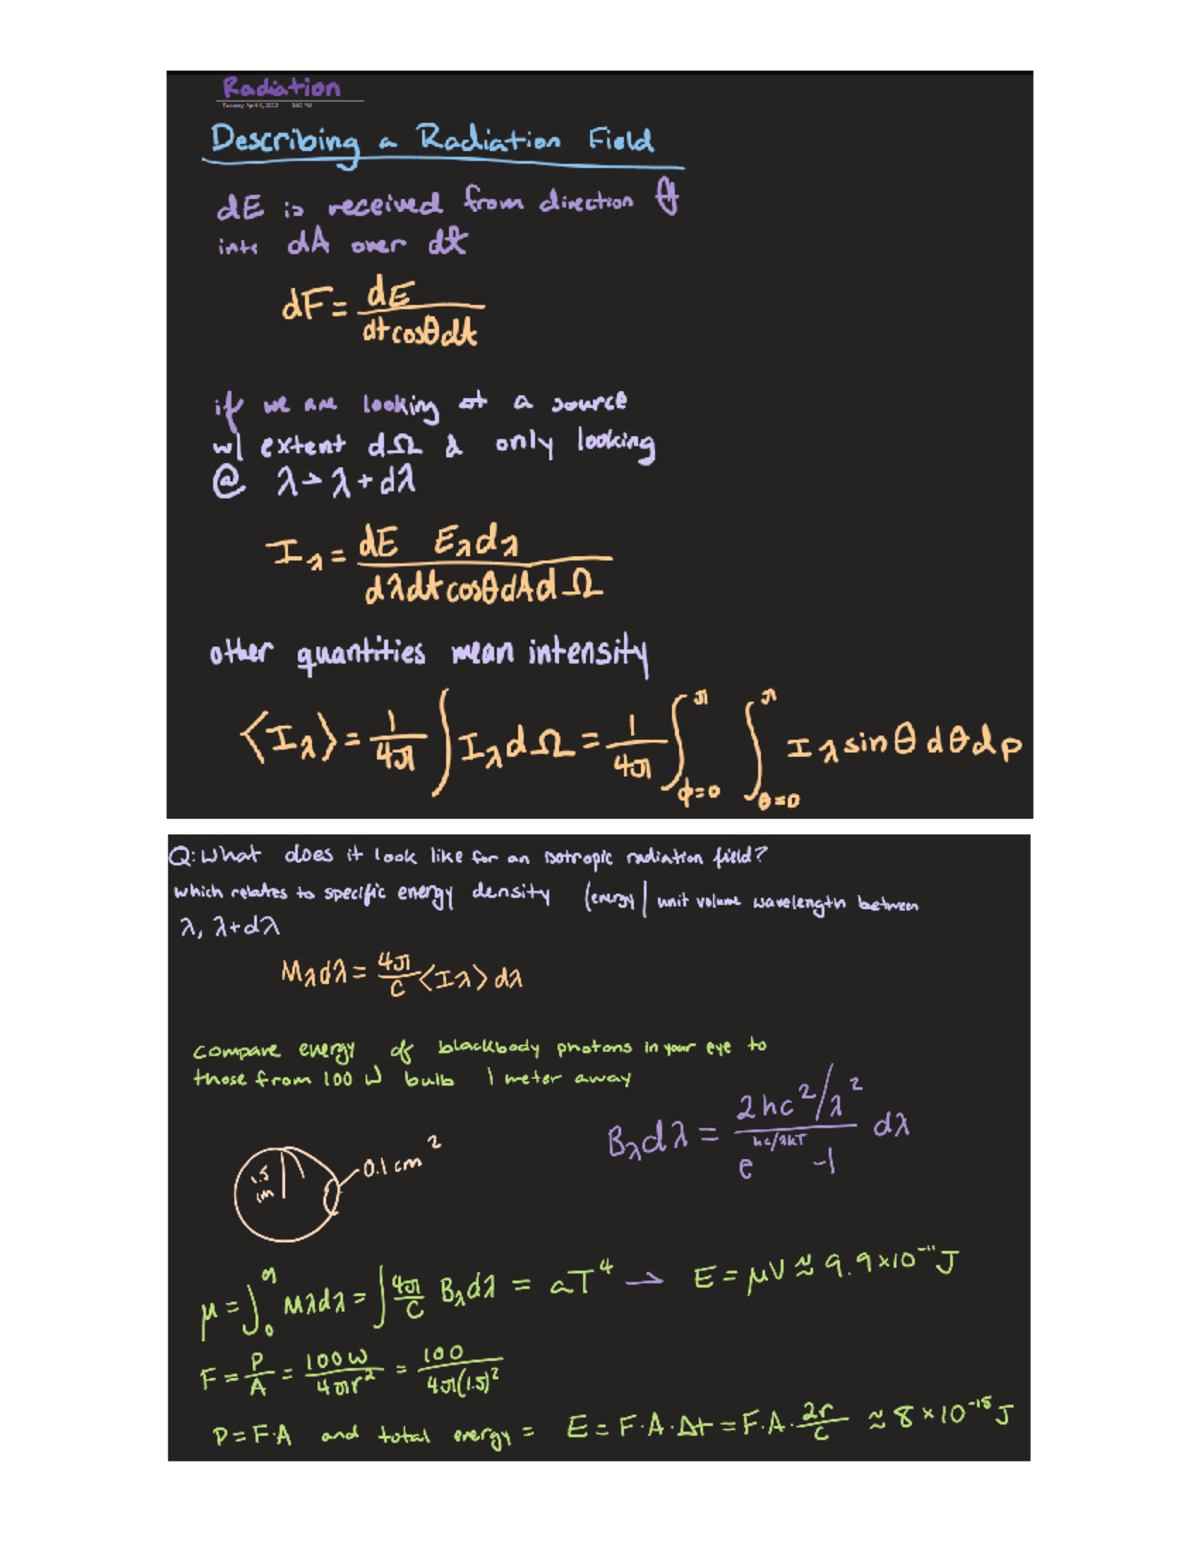 Radiation
Tuesday, April 5, 2022 5:02 PM
Describing a Radiation Field
dE is received from direction θ
into dA over dt
dF = dE / dtcosθdt
if we are looking at a source
w/ extent dΩ & only looking
@ λ → λ + dλ
I_λ = dE E_λd_λ / dλdtcosθdAdΩ
other quantities mean intensity
⟨I_λ⟩ = 1/4π ∫ I_λdΩ = 1/4π ∫_{φ=0}^{π} ∫_{θ=0}^{π} I_λ sinθdθdp
Q: What does it look like for an isotropic radiation field?
which relates to specific energy density (energy | unit volume wavelength between
λ, λ+dλ
M_λdλ = 4π/c ⟨I_λ⟩ dλ
compare energy of blackbody photons in your eye to
those from 100 W bulb 1 meter away
B_λdλ = 2hc²/λ² / e^{hc/λkT} -1 dλ
1.5
0.1 cm²
μ = ∫_0 M_λdλ = ∫ 4π/c B_λdλ = aT⁴ → E = μV ≈ 9.9×10⁻¹¹ J
F = P/A = 100W / 4πr² = 100 / 4π(1.5)²
P = F·A and total energy = E = F·A·Δt = F·A· 2r/c ≈ 8 × 10⁻¹⁵ J